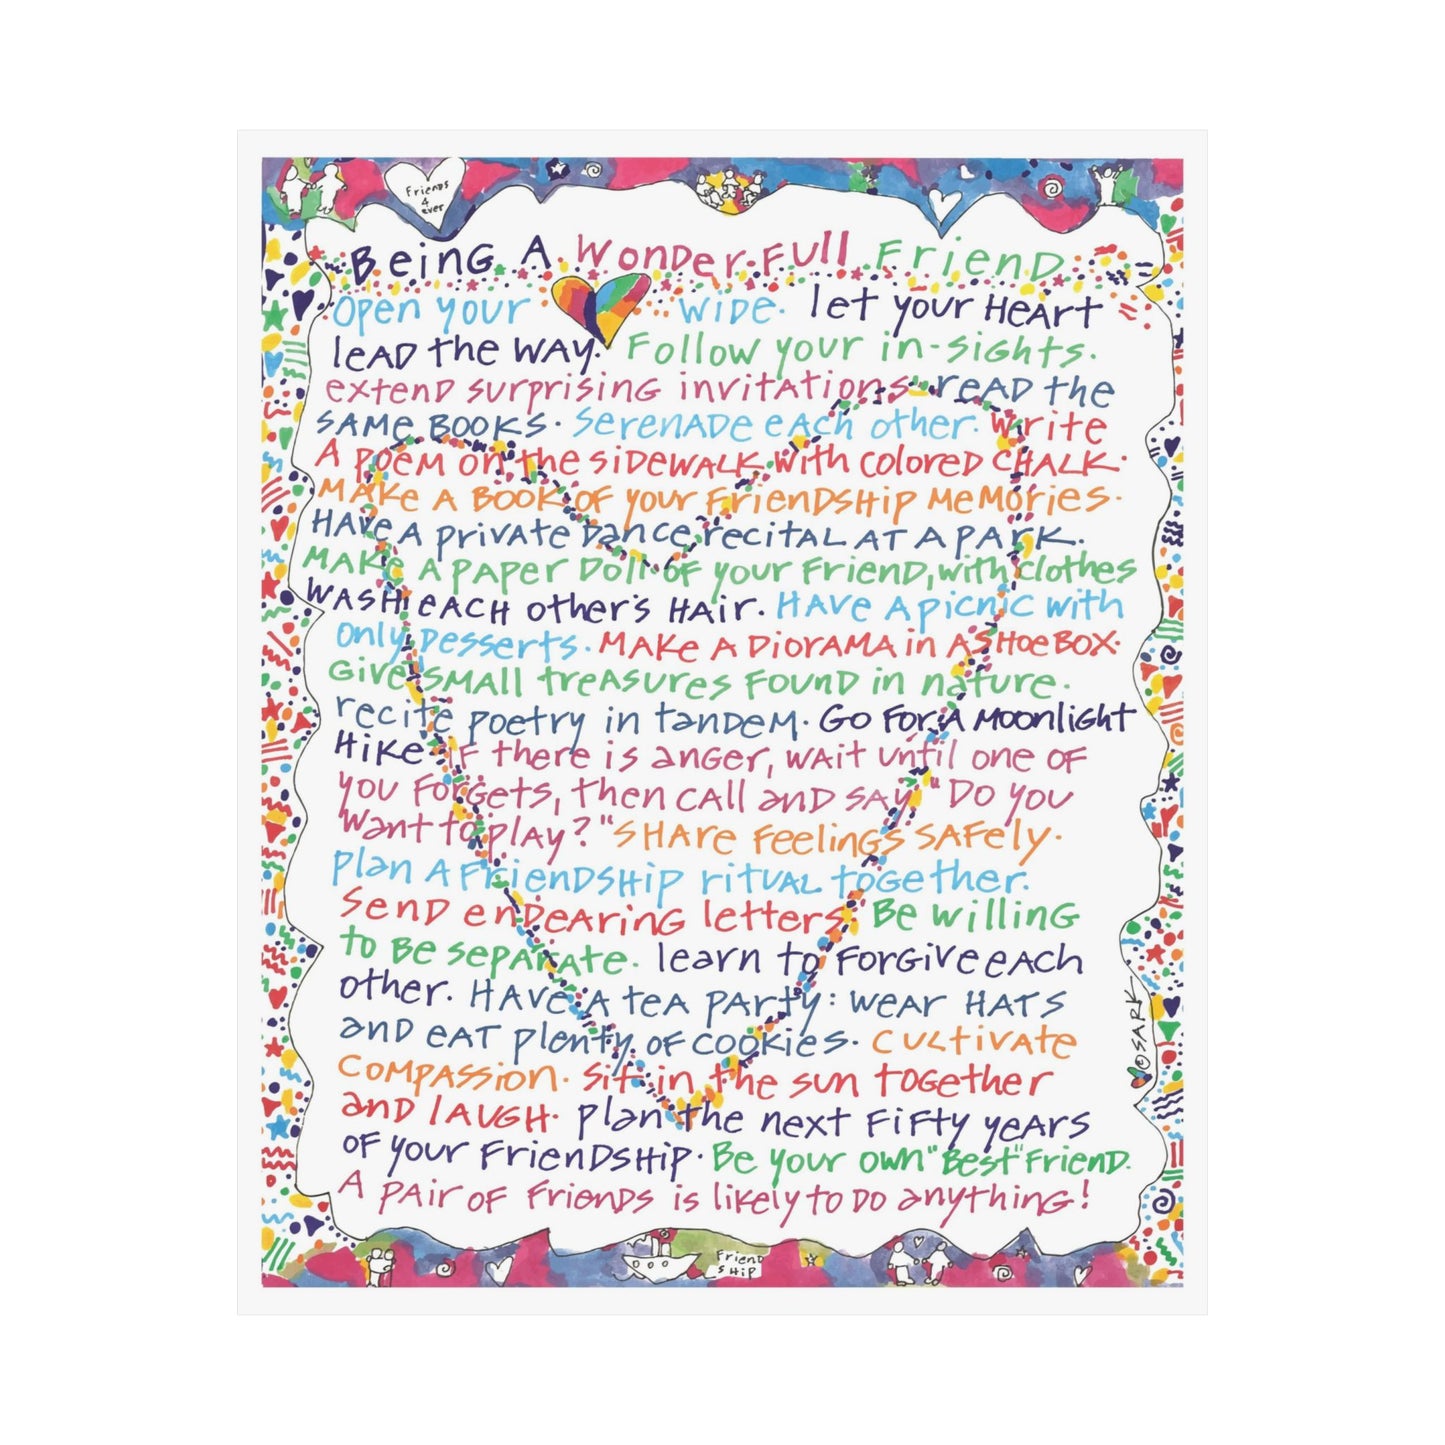 Friends
4
ever
Being A Wonder-Full Friend
Open your wide. let your Heart
lead the way. Follow your in-sights.
extend surprising invitations. read the
same books. Serenade each other. Write
A poem on the sidewalk with colored chalk.
Make a book of your friendship memories.
Have a private dance recital at a park.
Make a paper doll of your friend, with clothes
Wash each other's hair. Have a picnic with
only desserts. Make a diorama in a shoebox.
Give small treasures found in nature.
recite poetry in tandem. Go for a moonlight
Hike. If there is anger, wait until one of
you forgets, then call and say "Do you
want to play?" Share feelings safely.
plan a friendship ritual together.
Send endearing letters. Be willing
to be separate. learn to forgive each
other. Have a tea party: wear hats
and eat plenty of cookies. Cultivate
compassion. Sit in the sun together
and laugh. plan the next fifty years
of your friendship. Be your own "Best" Friend.
A pair of friends is likely to do anything!
SARK
Friend
ship